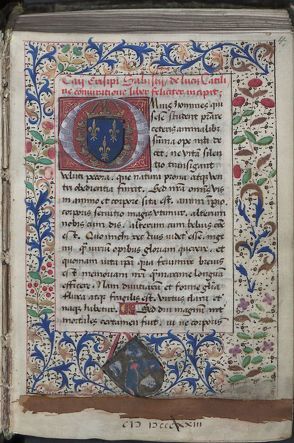 Caij Crispi Salustij de lucij Catili
ne coniuratione liber feliciter incipit;
Mnis homines qui
sese student prare
ceteris animalib.
suma ope niti de
cet, ne vita silen
tio transigant
veluti pecora, que natura prona atq ven
tri obedientia finxit. Sed nra omnis vis
in animo et corpore sita est. animi
corporis servitio magis utimur. alterum
nobis cum dis. alterum cum beluis cōe
est. Quo michi rectius videt esse inge
nij qm virium opibus gloriam querere, et
quoniam vita ipa qua fruimur brevis
est memoriam nri qm maxime longam
efficere. Nam divitiarum et forme glia
fluxa atq fragilis est. Virtus clara et
habetur. Sed diu magnum int
mortales certamen fuit, vi ne corporis